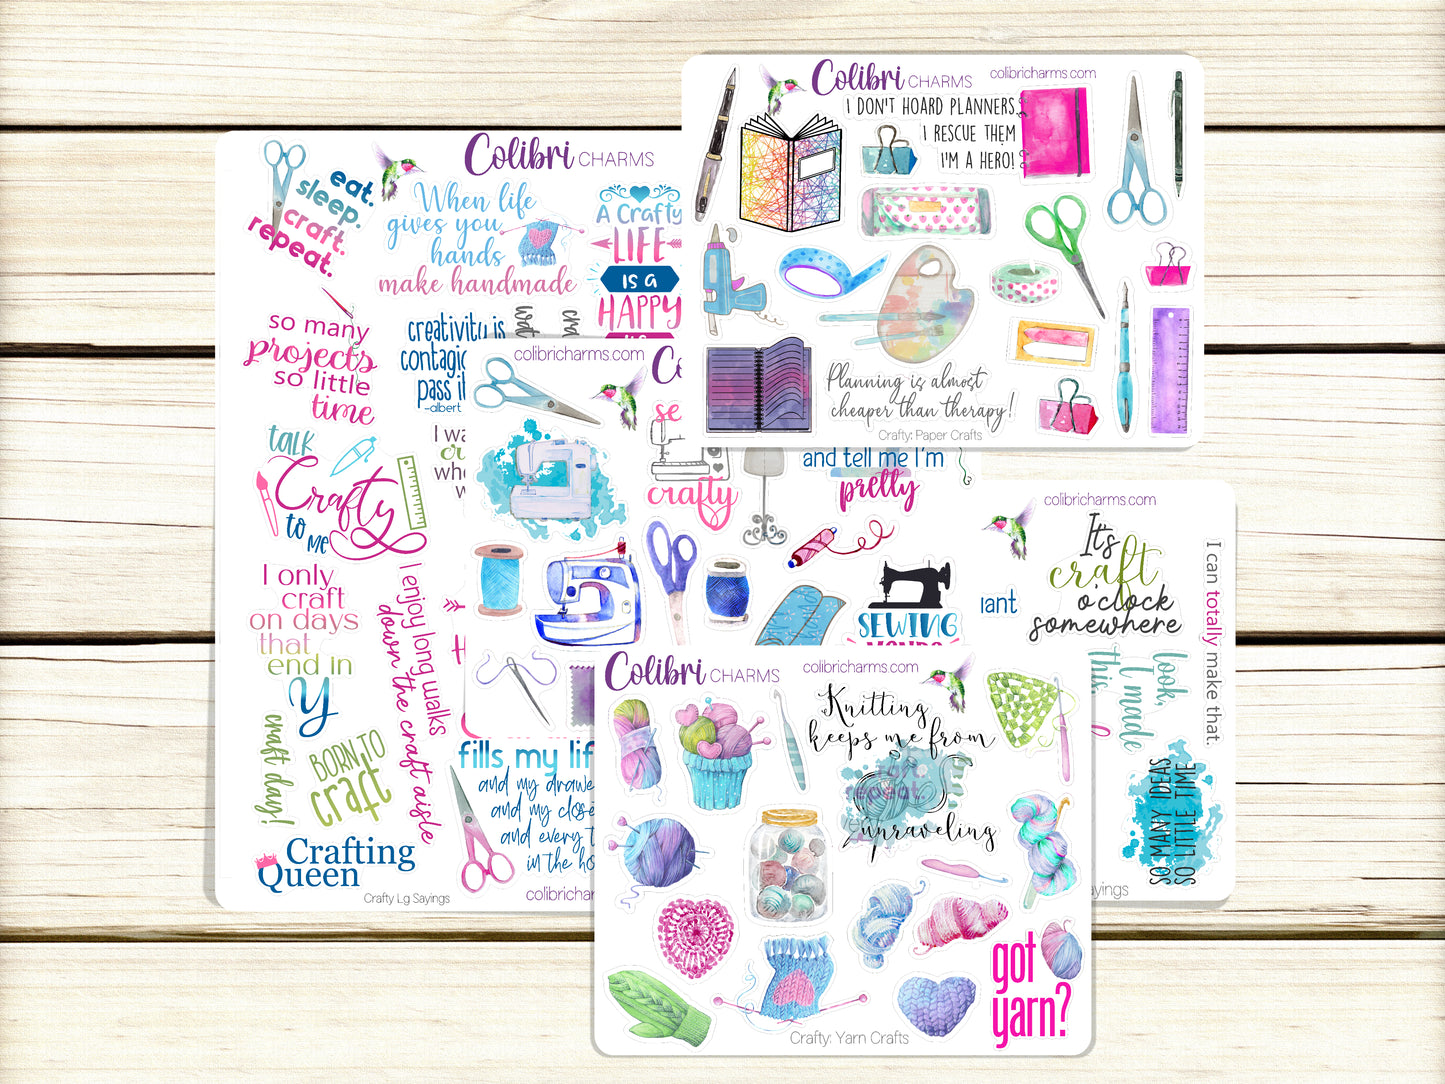 Colibri CHARMS
eat.
sleep.
craft.
repeat.
When life
gives you
hands
make handmade
A Crafty
LIFE
IS a
HAPPY
so many
projects
so little
time
creativity is
pass it
-albert
talk
Crafty
to
me
I only
craft
on days
that
end in
y
I enjoy long walks
down the craft aisle
craft day!
BORN TO
craft
Crafting
Queen
Crafty Lg Sayings
fills my life
and my
and my
and every
in the
colibricharms.com
Colibri CHARMS
colibricharms.com
I DON'T HOARD PLANNERS,
I RESCUE THEM
I'M A HERO!
Planning is almost
cheaper than therapy!
Crafty: Paper Crafts
colibricharms.com
crafty
and tell me I'm
pretty
SEWING
colibricharms.com
It's
craft
o'clock
somewhere
I can totally make that.
look,
I made
this
SO MANY IDEAS
SO LITTLE TIME
Sayings
Colibri CHARMS
colibricharms.com
Knitting
keeps me from
repeat.
unraveling
got
yarn?
Crafty: Yarn Crafts